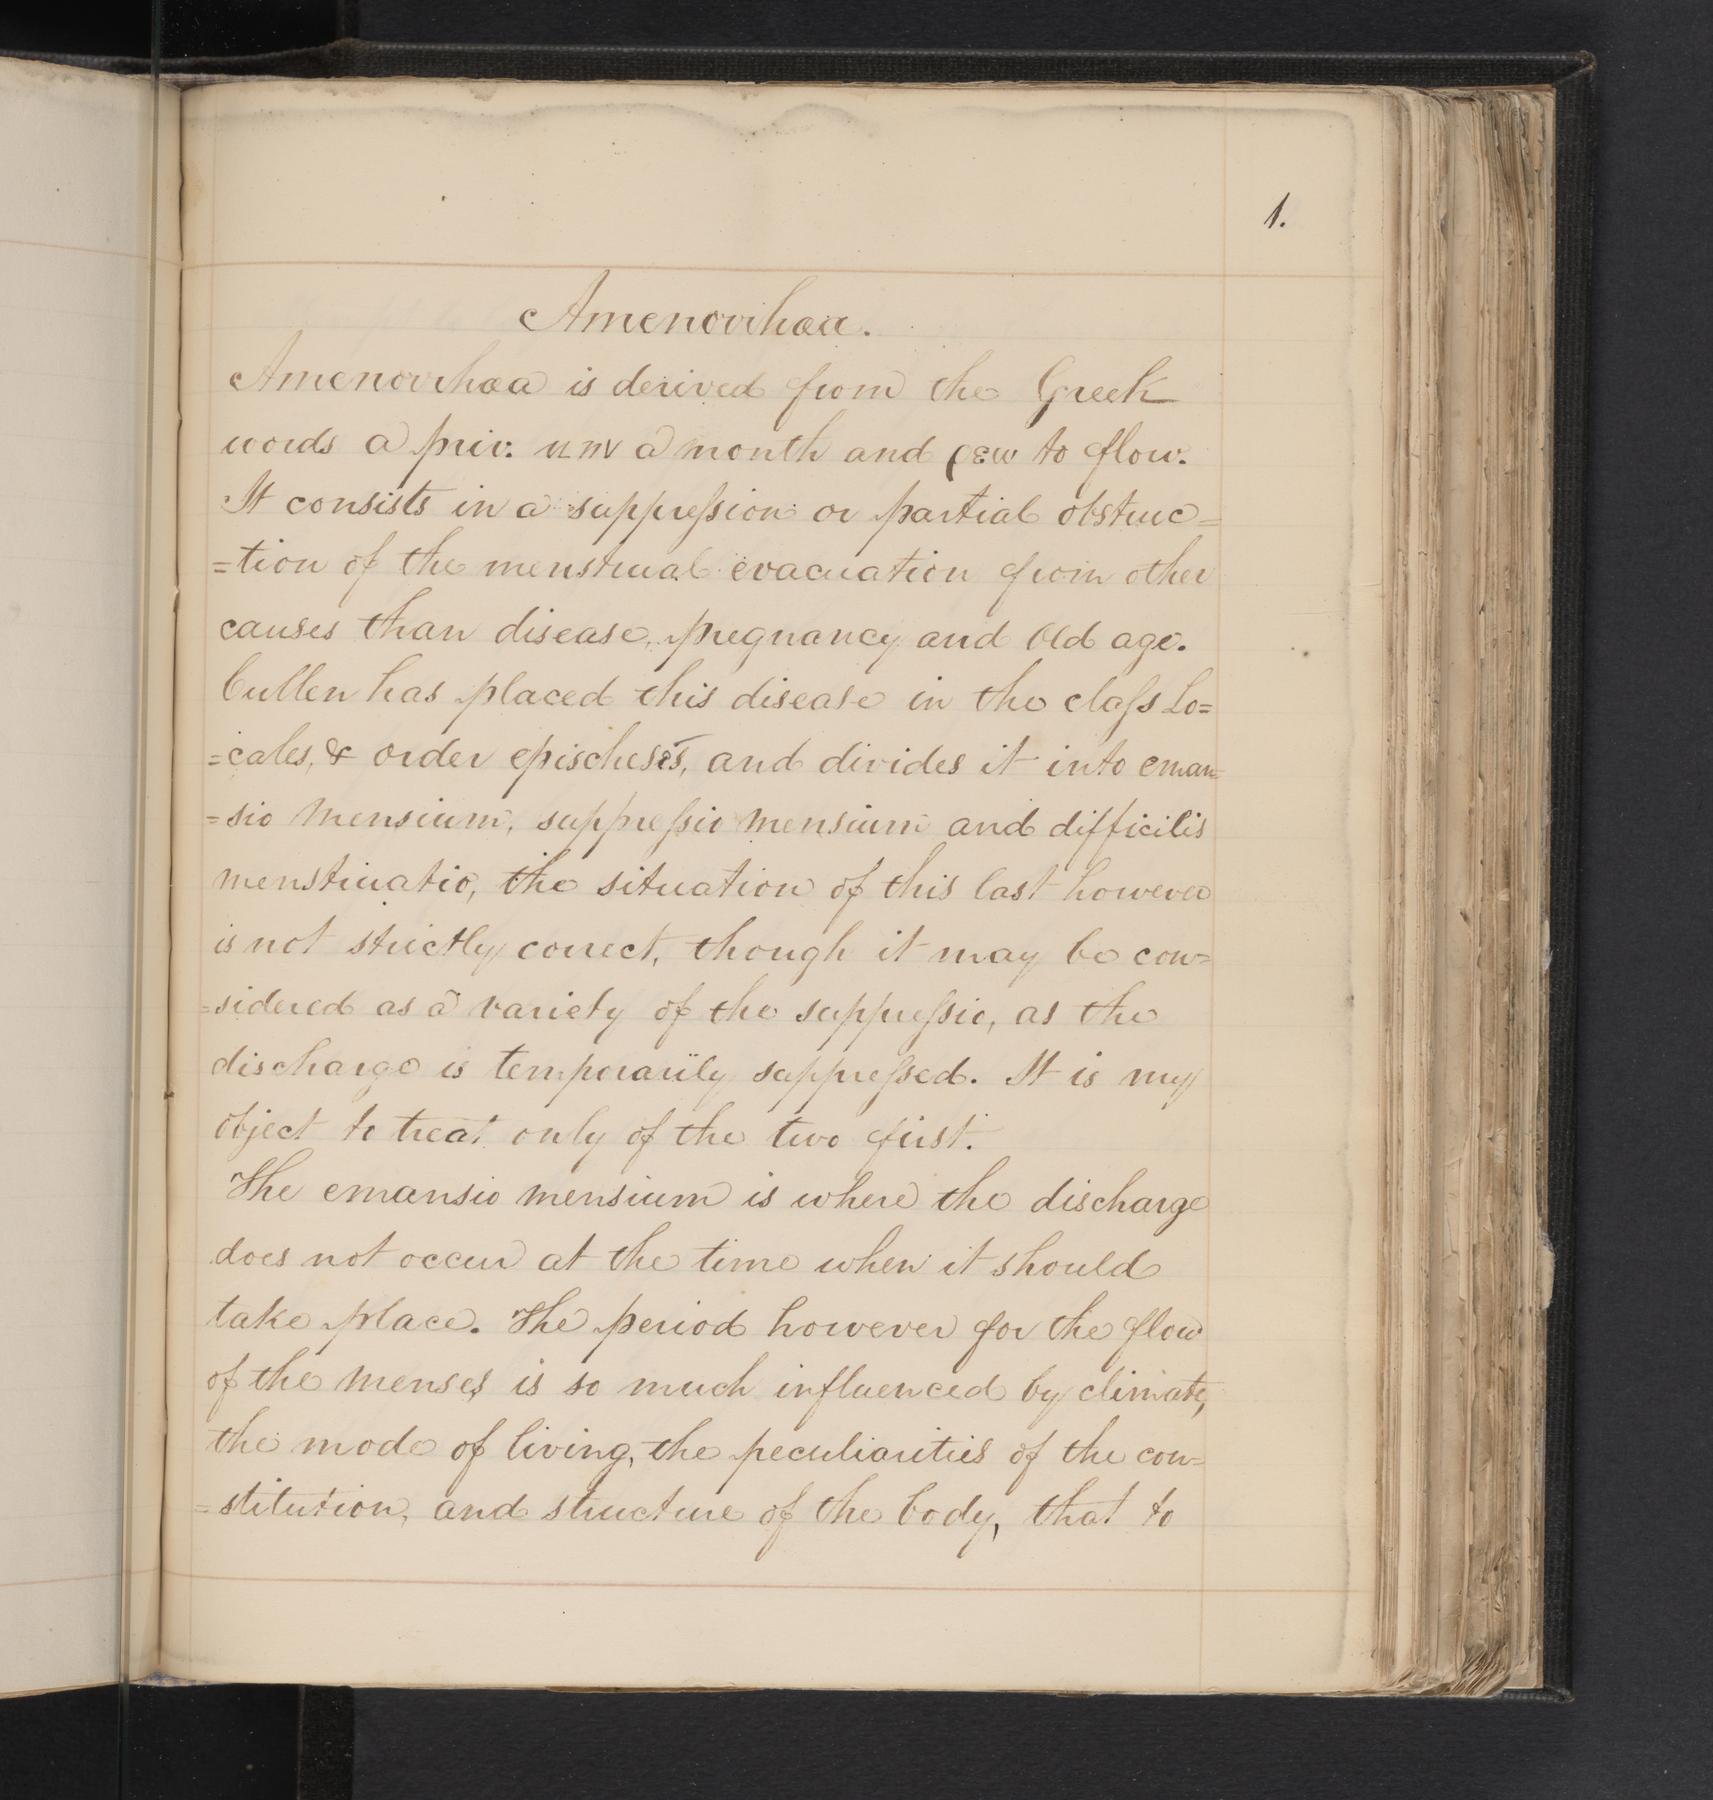 1.
Amenorrhœa.
Amenorrhœa is derived from the Greek
words a priv. μην a month and ρεω to flow.
It consists in a suppression or partial obstruc=
=tion of the menstrual evacuation from other
causes than disease, pregnancy and Old age.
Cullen has placed this disease in the class Lo=
=cales, & order epischesis, and divides it into eman=
=sio mensium, suppressio mensium and difficilis
menstruatio, the situation of this last however
is not strictly correct, though it may be con=
=sidered as a variety of the suppressio, as the
discharge is temporarily suppressed. It is my
object to treat only of the two first.
The emansio mensium is where the discharge
does not occur at the time when it should
take place. The period however for the flow
of the menses is so much influenced by climate,
the mode of living, the peculiarities of the con=
=stitution, and structure of the body, that to